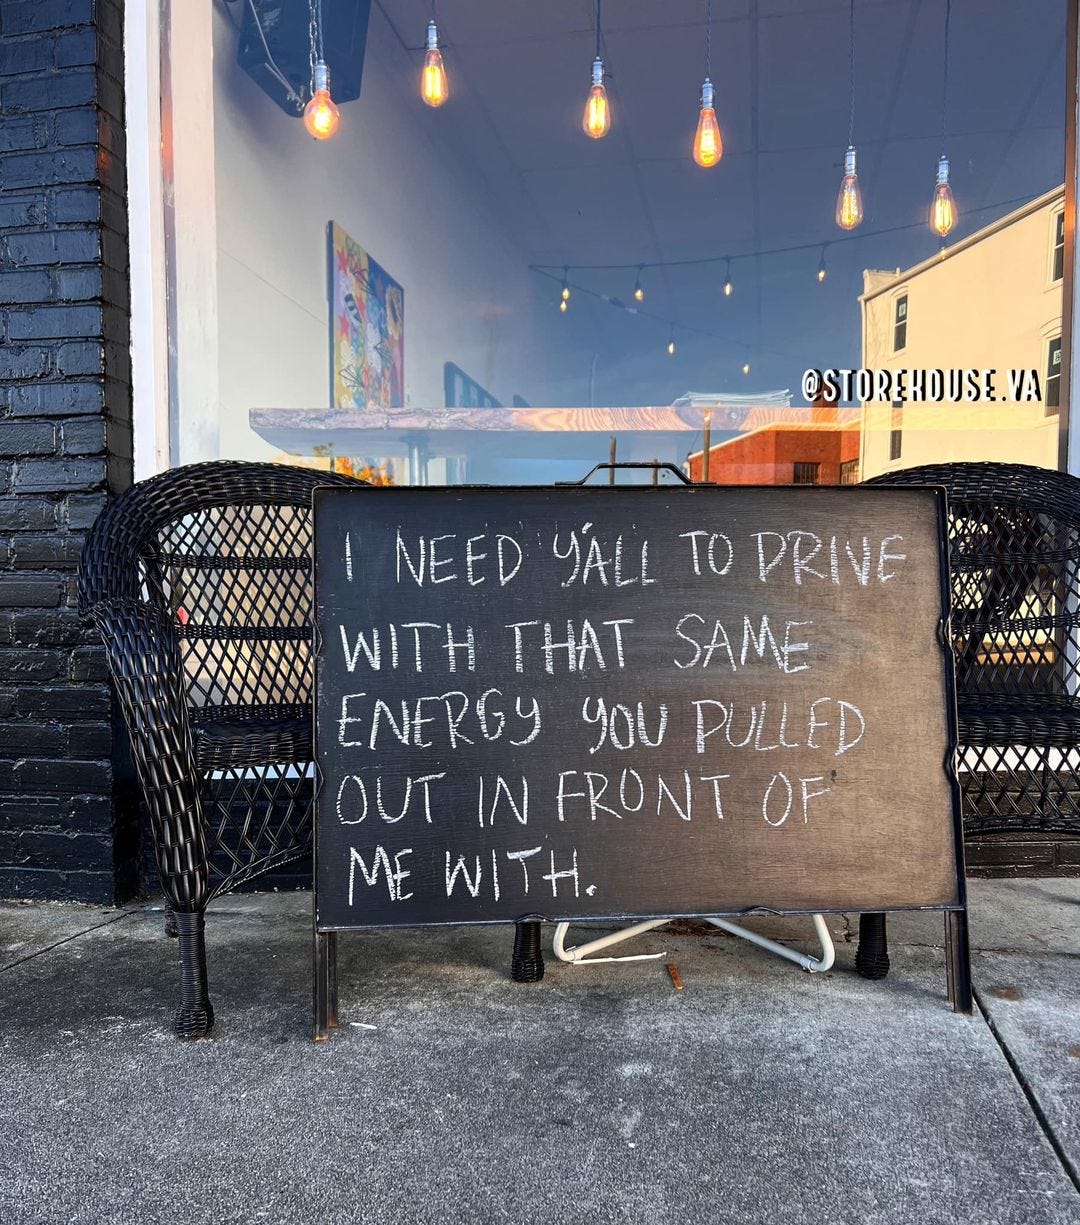 @STOREHOUSE.VA
I NEED Y'ALL TO DRIVE
WITH THAT SAME
ENERGY YOU PULLED
OUT IN FRONT OF
ME WITH.